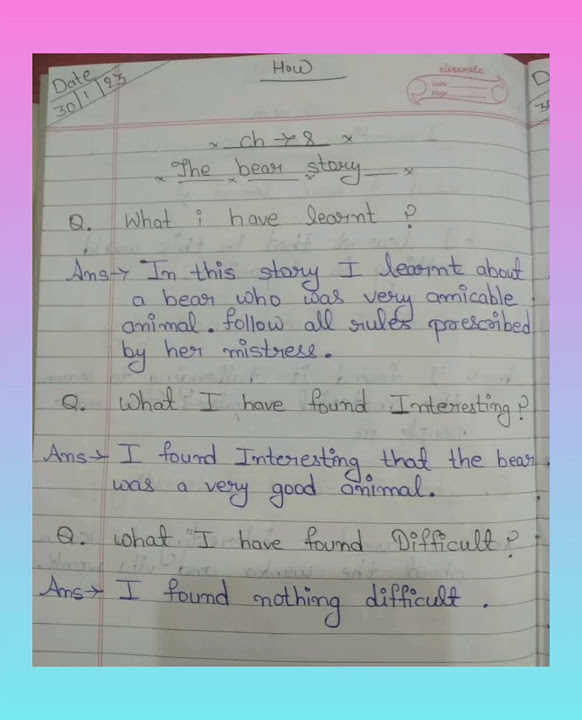 Date
30/1/23
How
classmate
Date
Page
ch → 8
The bear story
Q. What i have learnt ?
Ans→ In this story I learnt about
a bear who was very amicable
animal. follow all rules prescribed
by her mistress.
Q. What I have found Interesting?
Ans→ I found Interesting that the bear
was a very good animal.
Q. What I have found Difficult?
Ans→ I found nothing difficult.